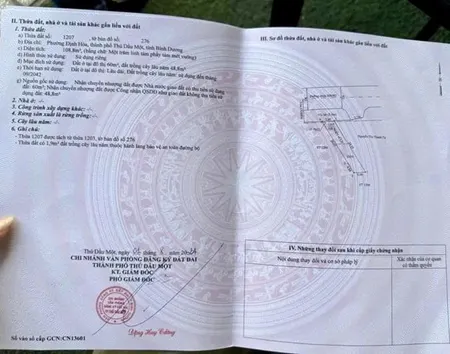 II. Thửa đất, nhà ở và tài sản khác gắn liền với đất
1. Thửa đất:
a) Thửa đất số: 1207 , tờ bản đồ số: 276
b) Địa chỉ: Phường Định Hòa, thành phố Thủ Dầu Một, tỉnh Bình Dương
c) Diện tích: 108,8m², (bằng chữ: Một trăm linh tám phẩy tám mét vuông)
d) Hình thức sử dụng: Sử dụng riêng
đ) Mục đích sử dụng: Đất ở tại đô thị 60m², đất trồng cây lâu năm 48,8m²
e) Thời hạn sử dụng: Đất ở tại đô thị: Lâu dài; Đất trồng cây lâu năm: sử dụng đến tháng 09/2042
g) Nguồn gốc sử dụng: Nhận chuyển nhượng đất được Nhà nước giao đất có thu tiền sử dụng đất: 60m²; Nhận chuyển nhượng đất được Công nhận QSDĐ như giao đất không thu tiền sử dụng đất: 48,8m²
2. Nhà ở: -/-
3. Công trình xây dựng khác: -/-
4. Rừng sản xuất là rừng trồng: -/-
5. Cây lâu năm: -/-
6. Ghi chú:
- Thửa đất 1207 được tách từ thửa 1203, tờ bản đồ số 276
- Thửa đất có 1,9m² đất trồng cây lâu năm thuộc hành lang bảo vệ an toàn đường bộ
Thủ Dầu Một, ngày
CHI NHÁNH VĂN PHÒNG ĐĂNG KÝ ĐẤT ĐAI
THÀNH PHỐ THỦ DẦU MỘT
KT. GIÁM ĐỐC
PHÓ GIÁM ĐỐC
Đặng Huy Cường
Số vào sổ cấp GCN:CN13601
III. Sơ đồ thửa đất, nhà ở và tài sản khác gắn liền với đất
IV. Những thay đổi sau khi cấp giấy chứng nhận
Nội dung thay đổi và cơ sở pháp lý
Xác nhận của cơ quan có thẩm quyền